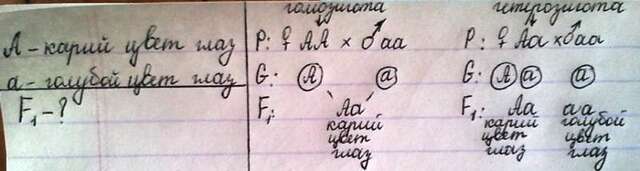 А - карий цвет глаз
а - голубой цвет глаз
F₁ - ?
гомозигота
P: ♀ АА × ♂ аа
G: А а
F₁: Аа
карий
цвет
глаз
гетерозигота
P: ♀ Аа × ♂ аа
G: А а а
F₁: Аа аа
карий голубой
цвет цвет
глаз глаз